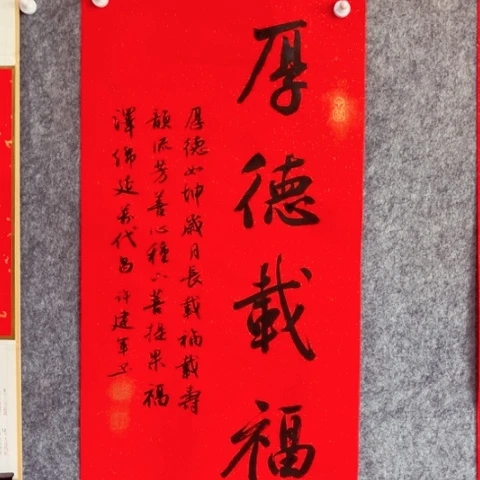 厚德載福
厚德如坤歲月長載福載壽
韻流芳善心種下菩提果福
澤綿延萬代昌許建軍书